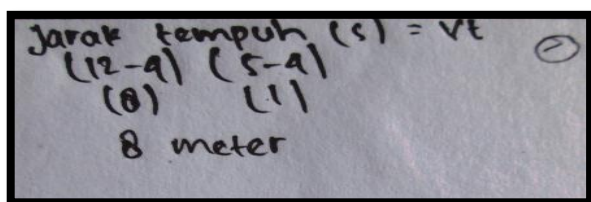 Jarak tempuh (s) = vt
(12-4) (5-4)
(8) (1)
8 meter